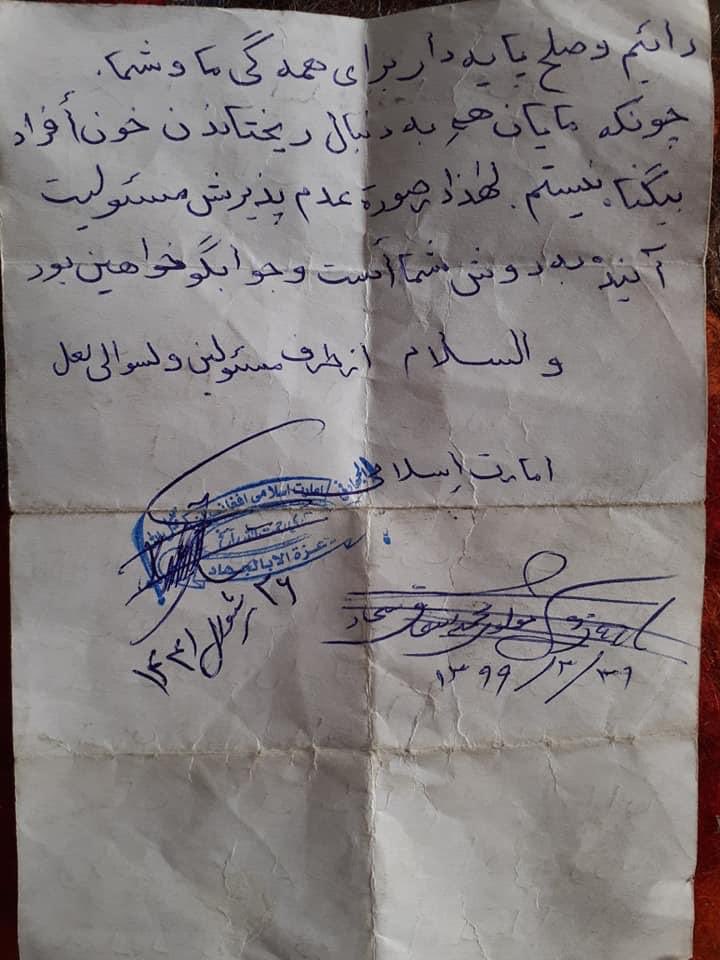 دایم و صلح پایه دار برای همه گی ما و شما.
چونکه مایان هم به دنبال ریختاندن خون أفراد
بیگناه نیستم. لهٰذا درصورة عدم پذیرش مسئولیت
آینده به دوش شما أست و جوابگو خواهین بود
والسلام از طرف مسئولین ولسوالی لعل
امارت اِسلامی
امارت اسلامی افغانستان
عزة الا بالجهاد
۲۶ شوال ۱۴۴۱
مولوی محمد
۱۳۹۹/۳/۳۹